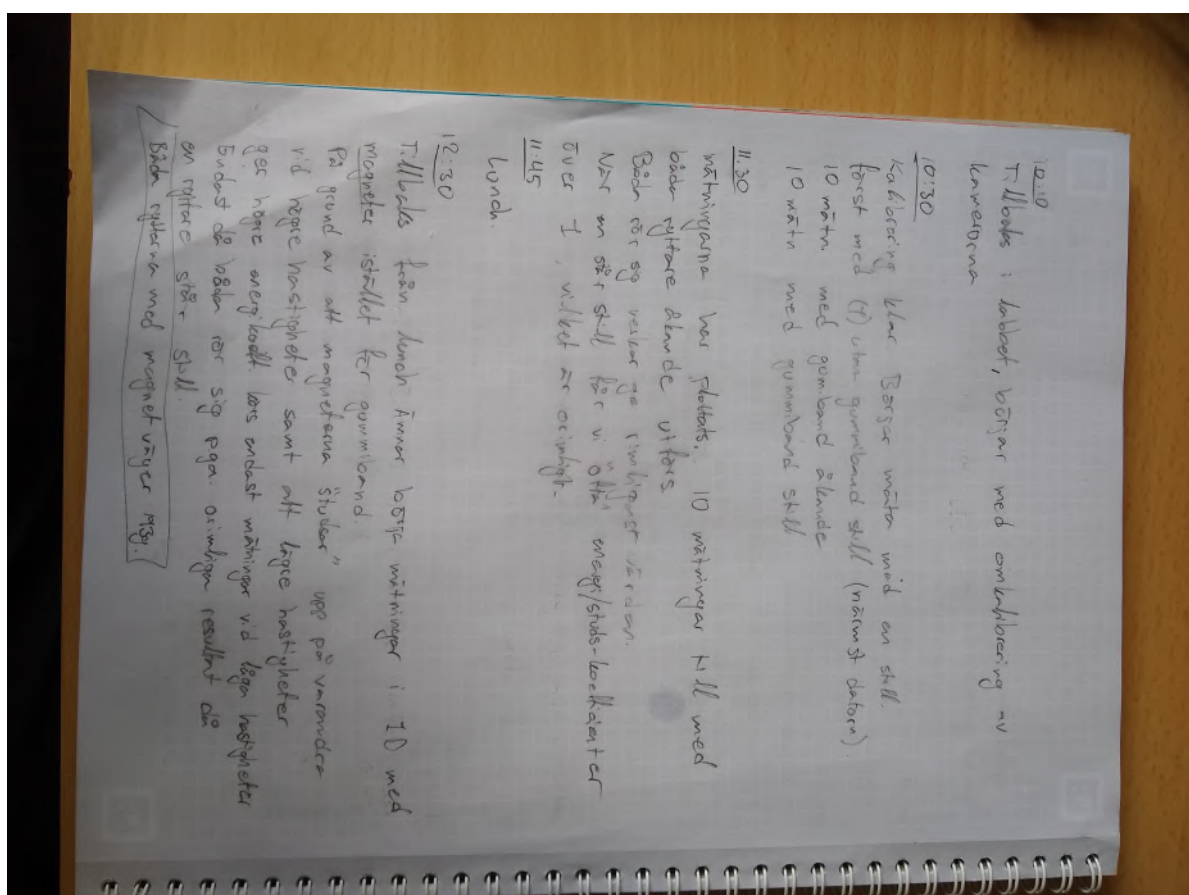 10:10
Tillbaka i labbet, börjar med omkalibrering av
kamerorna
10:30
Kalibrering klar Börjar mäta med en still.
först med (1) utan gummiband still (närmst datorn)
10 mätn. med gumband åkande
10 mätn med gummiband still
11.30
mätningarna har plottats. 10 mätningar till med
båda ryttare åkande utförs
Båda rör sig verkar ge rimligast värden.
När en står still får vi ofta energi/studs-koefficienter
över 1, vilket är orimligt.
11:45
Lunch.
12:30
Tillbaka från lunch Ämnar börja mätningar i 1D med
magneter istället för gummiband.
På grund av att magneterna "studsar" upp på varandra
vid högre hastigheter samt att lägre hastigheter
ger högre energikoeff. körs endast mätningar vid låga hastigheter
Endast då båda rör sig pga. orimliga resultat då
en ryttare står still.
Båda ryttarna med magnet väger 193g.